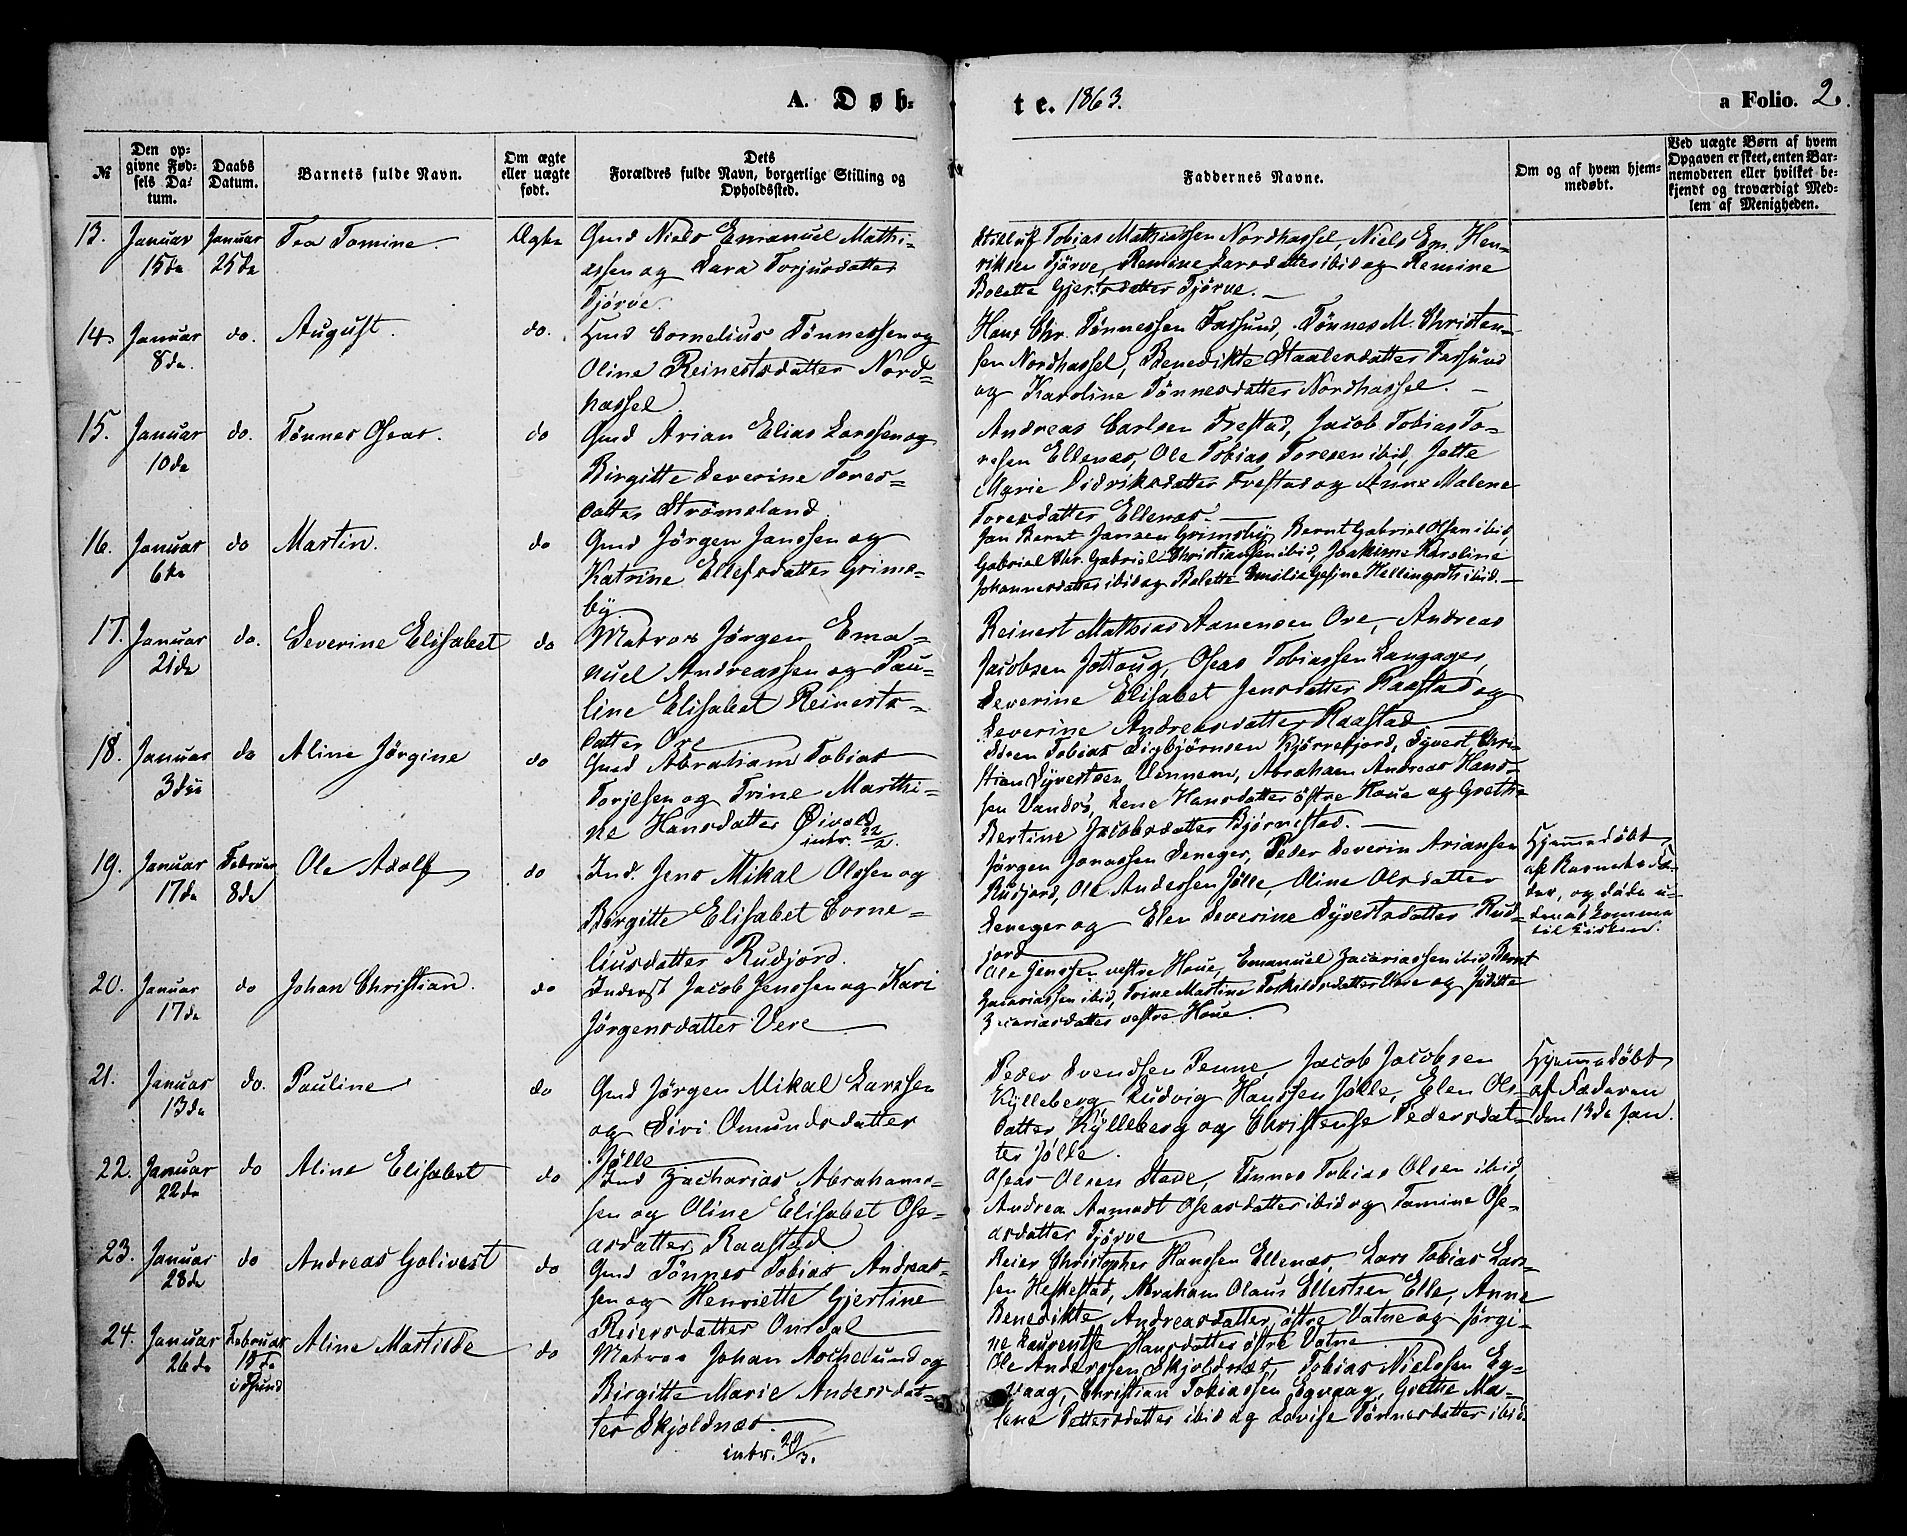 A. Døb-
te. 1863.
a Folio. 2.
№
Den op-
givne Fød-
sels Da-
tum.
Daabs
Datum.
Barnets fulde Navn.
Om ægte
eller uægte
født.
Dets
Forældres fulde Navn, borgerlige Stilling og
Opholdssted.
Faddernes Navne.
Om og af hvem hjem-
medøbt.
Ved uægte Børn af hvem
Opgaven er skeet, enten Bar-
nemoderen eller hvilket be-
kjendt og troværdigt Med-
lem af Menigheden.
13.
Januar
15de
Januar
25de
Tea Tomine.
Ægte
Gmd Niels Emanuel Mathi-
assen og Sara Torjusdatter
Tjørve.
Tobias Mathiassen Nordhassel, Niels Em. Hen-
riksen Tjørve, Remine Larsdatter ibid og Remine
Bolette Gjertsdatter Tjørve.
14.
Januar
8de.
do.
August.
do.
Gmd Cornelius Tønnessen og
Oline Reinertsdatter Nord-
hassel
Hans Chr. Tønnessen Farsund, Tønnes M. Christen-
sen Nordhassel, Benedikte Staalesdatter Farsund
og Karoline Tønnesdatter Nordhassel.
15.
Januar
10de
do.
Tønnes Oseas.
do
Gmd Arian Elias Larssen og
Birgitte Severine Tores-
datter Strømsland.
Andreas Carlsen Frestad, Jacob Tobias To-
resen Ellenes, Ole Tobias Toresen ibid, Jette
Marie Didriksdatter Frestad og Anne Malene
Toresdatter Ellenes.
16.
Januar
6te
do
Martin.
do
Gmd Jørgen Janssen og
Katrine Ellefsdatter Grims-
by
Jan Bernt Jansen Grimsby, Bernt Gabriel Olsen ibid,
Gabriel Chr. Gabriel Christiansen ibid, Joakime Karoline
Johannesdatter ibid og Bolette Emilie Gesine ibid.
17.
Januar
21de
do.
Severine Elisabet
do
Matros Jørgen Ema-
nuel Andreassen og Pau-
line Elisabet Reinerts-
datter Ore
Reinert Mathias Aanensen Ore, Andreas
Jacobsen Jølloug, Oseas Tobiassen Langager,
Severine Elisabet Jensdatter Raastad og
Severine Andreasdatter Raastad
18.
Januar
3die
do
Aline Jørgine
do
Gmd Abraham Tobias
Torjesen og Trine Marthi-
ne Hansdatter Øivold
intr. 22/2.
Søren Tobias Sigbjørnsen Kjørrefjord, Syvert Chri-
stian Syvertsen Vennem, Abraham Andreas Hans-
sen Vandø, Lene Hansdatter østre Houe og Grethe
Bertine Jacobsdatter Bjørnestad.
19.
Januar
17de
Februar
8de
Ole Adolf
do
Ind. Jens Mikal Olssen og
Birgitte Elisabet Corne-
liusdatter Rudjord.
Jørgen Jonassen Seneger, Peder Severin Ariansen
Rudjord, Ole Andersen Jølle, Oline Olsdatter
Seneger og Elen Severine Syvertsdatter Rud-
jord
Hjemmedøbt
af Barnets Fa-
der, og døde u-
den at komme
til Kirken.
20.
Januar
17de
do
Johan Christian.
do
Inderst Jacob Jenssen og Kari
Jørgensdatter Vere
Ole Jenssen vestre Houe, Emanuel Zacariassen ibid, Bernt
Zacariassen ibid, Trine Martine Torkildsdatter Vere og Juditte
Zacariasdatter vestre Houe.
21.
Januar
13de
do.
Pauline
do
Gmd Jørgen Mikal Larssen
og Siri Omundsdatter
Jølle
Peder Svendsen Penne, Jacob Jacobsen
Kylleberg, Ludvig Hanssen Jølle, Elen Ols-
datter Kylleberg og Christense Pedersdat-
ter Jølle.
Hjemmedøbt
af Faderen
den 13de Jan.
22.
Januar
22de
do
Aline Elisabet
do
Ind Zacharias Abrahams-
sen og Oline Elisabet Ose-
asdatter Raastad
Oseas Olsen Stave, Tønnes Tobias Olsen ibid,
Andrea Oseasdatter ibid og Tomine Ose-
asdatter Tjørve
23.
Januar
28de
do
Andreas Golivert
do
Gmd Tønnes Tobias Andreas-
sen og Henriette Gjertine
Reiersdatter Ourdal
Reier Christopher Hanssen Ellenes, Lars Tobias Lars-
sen Heskestad, Abraham Olaus Ellertsen Elle, Anne
Benedikte Andreasdatter østre Vatne og Jørgi-
ne Laurentse Hansdatter østre Vatne
24.
Januar
26de
Februar
18de
i Fsund
Aline Martilde
do
Matros Johan Aschelund og
Birgitte Marie Andersdat-
ter Skjoldnes.
intr. 29/3.
Ole Anderssen Skjoldnæs, Tobias Nielssen Eg-
vaag, Christian Tobiassen Egvaag, Grethe Ma-
lene Pettersdatter ibid og Lovise Tønnesdatter ibid